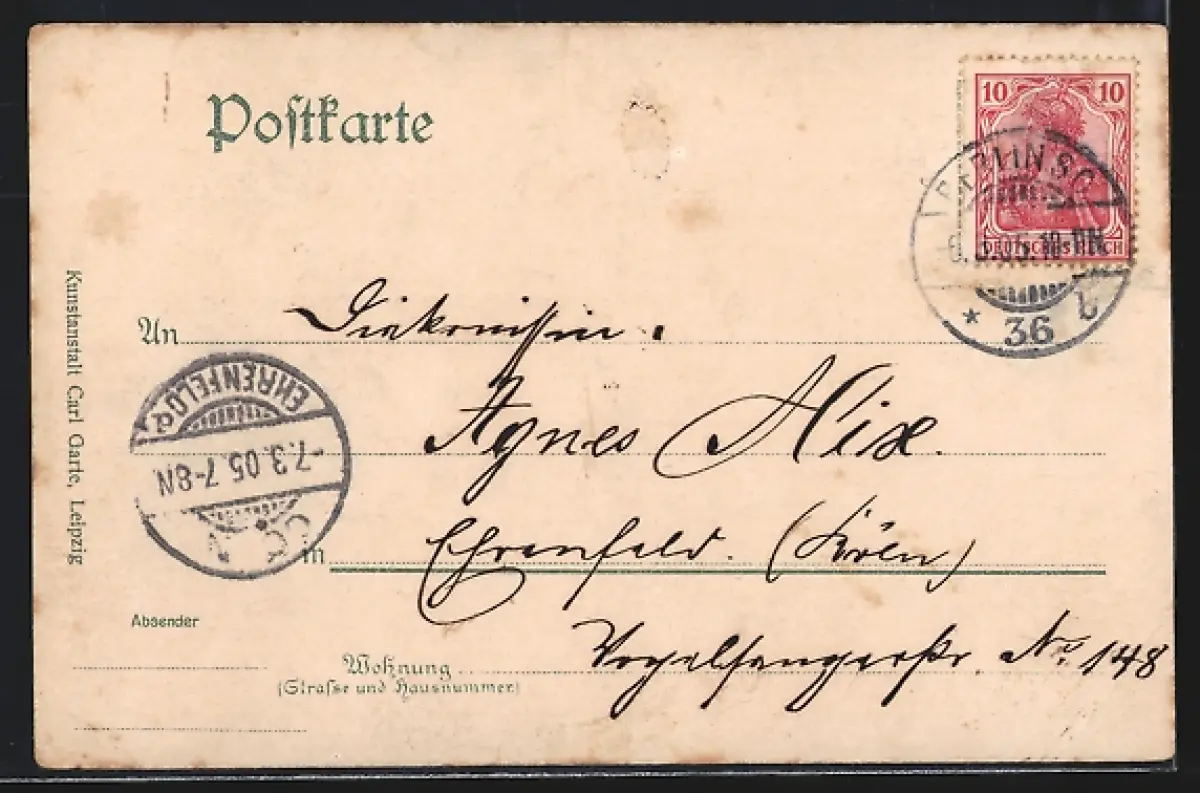 Postkarte
10 10
DEUTSCHES REICH
BERLIN S.O.
3.05.10-11N
* 36 b
An Diakonissin.
Agnes Nix.
in Ehrenfeld. (Köln)
Wohnung Vogelsangerstr. No. 148
(Straſse und Hausnummer)
Absender
EHRENFELD
-7.3.05.7-8N
Kunstanstalt Carl Garte, Leipzig